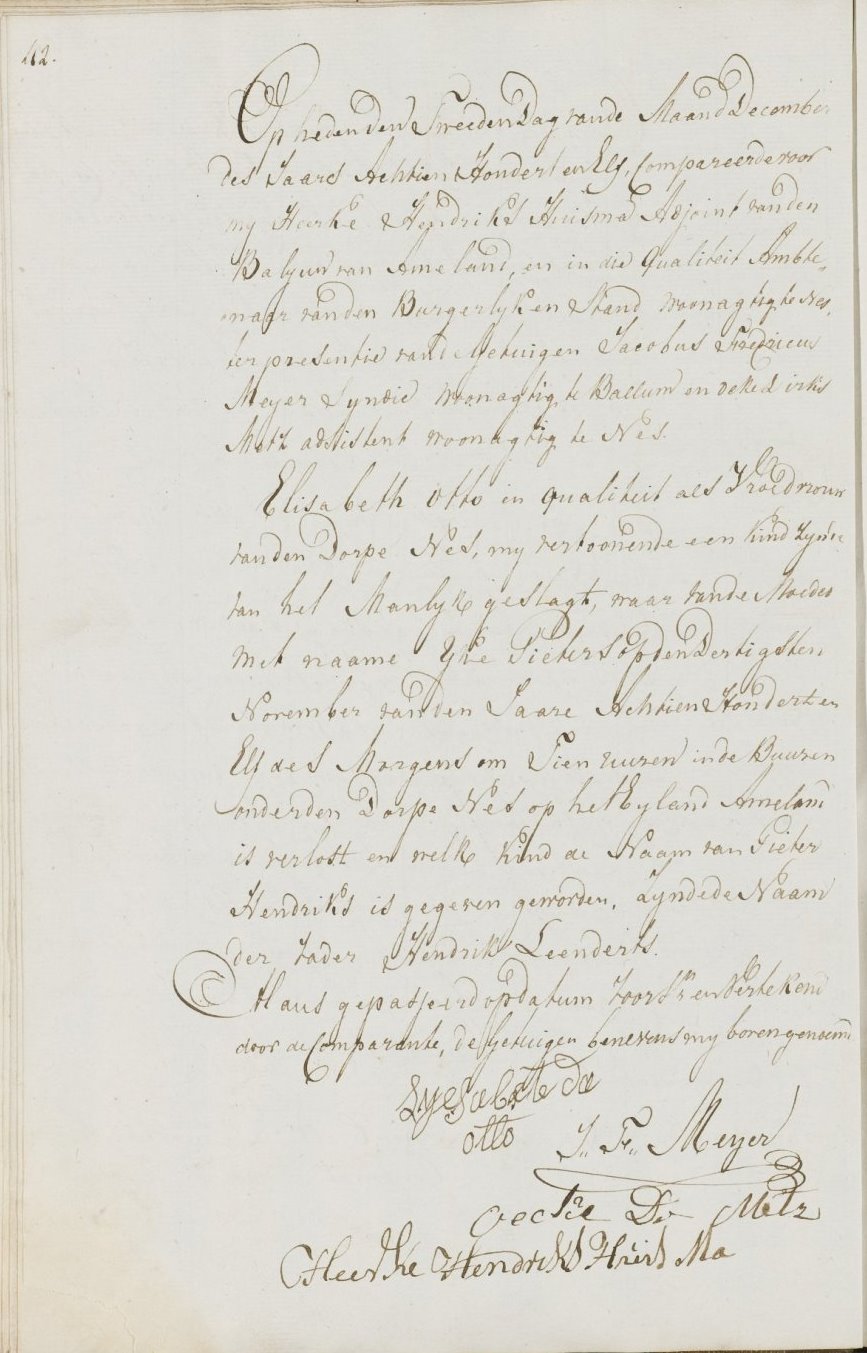 42.
Op heden den Tweeden Dag vande Maand December
des Jaars Achtien Hondert en Elf, Compareerde voor
my Heerke Hendriks Huisma Adjoint van den
Baljuw van Ameland, en in die Qualiteit Ambte„
naar van den Burgerlyken Stand woonagtig te Nes,
ter presentie vande Getuigen Jacobus Fredricus
Meyer Syndic woonagtig te Ballum en Oeke Dirks
Metz adsistent woonagtig te Nes.
Elisabeth Otto in qualiteit als Vroedvrouw
van den Dorpe Nes, my vertoonende een kind zynde
van het Manlyk geslagt, waar van de Moeder
met naame Yke Pieters op den Dertigsten
November van den Jaare Achtien Hondert en
Elf des Morgens om Tien uuren in de Buuren
onder den Dorpe Nes op het Eyland Ameland
is verlost en welk kind de Naam van Pieter
Hendriks is gegeven geworden. Zynde de Naam
der Vader Hendrik Leenderts.
Aldus gepasseerd op datum voorsz: en Vertekend
door de Comparante, de Getuigen benevens my bovengenoemd
Lyesabet de
otto
J. Fr. Meyer
oecke D: Metz
Heerke Hendriks Huisma